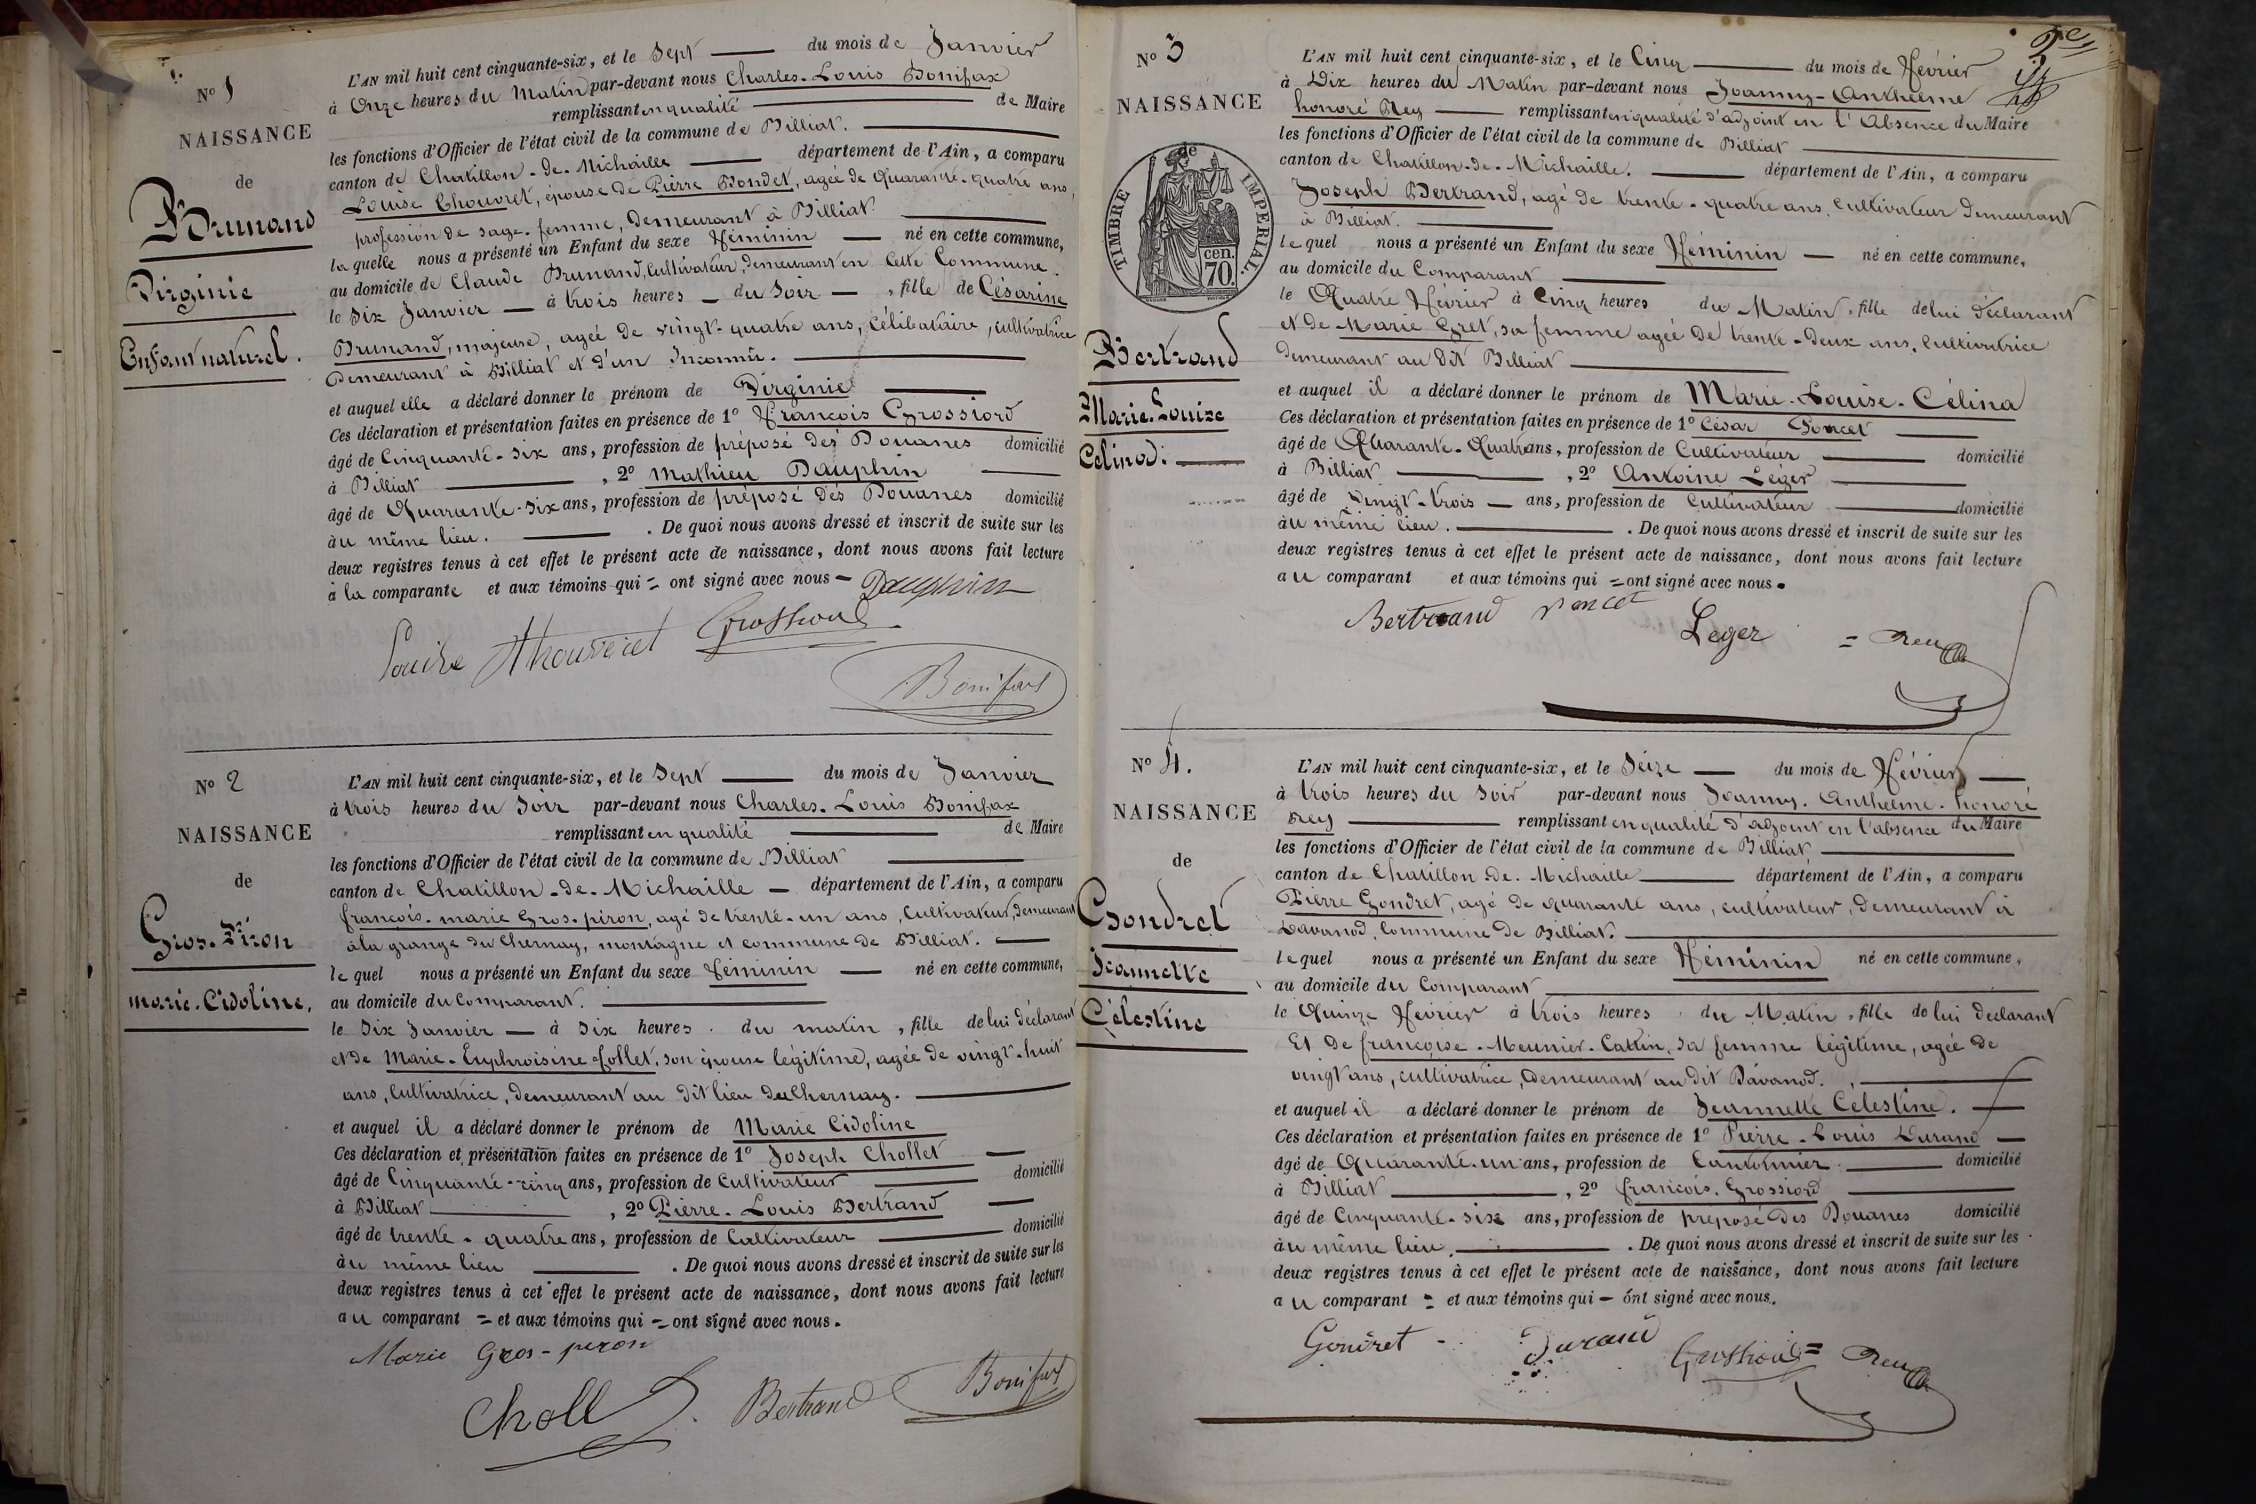 No 1
NAISSANCE
de
Brunand
Virginie
Enfant naturel.
L'AN mil huit cent cinquante-six, et le Sept du mois de Janvier
à Onze heures du Matin par-devant nous Charles-Louis Bonifax
remplissant en qualité de Maire
les fonctions d'Officier de l'état civil de la commune de Billiat.
canton de Chatillon-de-Michaille département de l'Ain, a comparu
Louise Chouvret, épouse de Pierre Bondet, agée de Quarante-quatre ans,
profession de sage-femme, demeurant à Billiat
la quelle nous a présenté un Enfant du sexe Féminin né en cette commune,
au domicile de Claude Brunand, cultivateur, demeurant en Cette Commune.
le Six Janvier à trois heures du Soir, fille de Césarine
Brunand, majeure, agée de vingt-quatre ans, Célibataire, cultivatrice
Demeurant à Billiat et d'un Inconnu.
et auquel elle a déclaré donner le prénom de Virginie
Ces déclaration et présentation faites en présence de 1o François Grossiord
âgé de Cinquante-six ans, profession de préposé des Douanes domicilié
à Billiat, 2o Mathieu Dauphin
âgé de Quarante-six ans, profession de préposé des Douanes domicilié
au même lieu. De quoi nous avons dressé et inscrit de suite sur les
deux registres tenus à cet effet le présent acte de naissance, dont nous avons fait lecture
à la comparante et aux témoins qui = ont signé avec nous - Dauphin
Louise Chouvret Grossiord
Bonifax
No 2
NAISSANCE
de
Gros-Piron
marie-Cidoline,
L'AN mil huit cent cinquante-six, et le Sept du mois de Janvier
à trois heures du Soir par-devant nous Charles-Louis Bonifax
remplissant en qualité de Maire
les fonctions d'Officier de l'état civil de la commune de Billiat
canton de Chatillon-de-Michaille département de l'Ain, a comparu
françois-marie Gros-piron, agé de trente-un ans, Cultivateur, demeurant
à la grange du Chernay, montagne et commune de Billiat.
le quel nous a présenté un Enfant du sexe féminin né en cette commune,
au domicile du Comparant.
le Six Janvier à Six heures du matin, fille de lui déclarant
et de Marie-Euphroisine follet, son épouse légitime, agée de vingt-huit
ans, Cultivatrice, demeurant au dit lieu du Chernay.
et auquel il a déclaré donner le prénom de Marie Cidoline
Ces déclaration et présentation faites en présence de 1o Joseph Chollet
âgé de Cinquante-cinq ans, profession de Cultivateur domicilié
à Billiat, 2o Pierre-Louis Bertrand
âgé de trente-quatre ans, profession de Cultivateur domicilié
au même lieu. De quoi nous avons dressé et inscrit de suite sur les
deux registres tenus à cet effet le présent acte de naissance, dont nous avons fait lecture
au comparant = et aux témoins qui = ont signé avec nous.
Marie Gros-piron
Choll Bertrand Bonifax
2e
No 3
NAISSANCE
de
TIMBRE IMPERIAL.
70 cen.
Bertrand
Marie-Louise
Celina.
L'AN mil huit cent cinquante-six, et le Cinq du mois de Février
à Dix heures du Matin par-devant nous Joanny-Anthelme
honoré Rey remplissant en qualité d'adjoint en l'Absence du Maire
les fonctions d'Officier de l'état civil de la commune de Billiat
canton de Chatillon-de-Michaille. département de l'Ain, a comparu
Joseph Bertrand, agé de trente-quatre ans, Cultivateur demeurant
à Billiat.
le quel nous a présenté un Enfant du sexe Féminin né en cette commune,
au domicile du Comparant
le Quatre Février à Cinq heures du Matin, fille de lui déclarant
et de Marie Gret, sa femme agée de trente-deux ans, Cultivatrice
demeurant au dit Billiat
et auquel il a déclaré donner le prénom de Marie-Louise-Célina
Ces déclaration et présentation faites en présence de 1o César Poncet
âgé de Quarante-Quatre ans, profession de Cultivateur domicilié
à Billiat, 2o Antoine Léger
âgé de vingt-trois ans, profession de Cultivateur domicilié
au même lieu. De quoi nous avons dressé et inscrit de suite sur les
deux registres tenus à cet effet le présent acte de naissance, dont nous avons fait lecture
au comparant et aux témoins qui = ont signé avec nous.
Bertrand Poncet
Leger = Rey
No 4.
NAISSANCE
de
Gondret
Jeannette
Célestine
L'AN mil huit cent cinquante-six, et le Seize du mois de Février
à trois heures du Soir par-devant nous Joanny-Anthelme-honoré
Rey remplissant en qualité d'adjoint en l'absence du Maire
les fonctions d'Officier de l'état civil de la commune de Billiat
canton de Chatillon de Michaille département de l'Ain, a comparu
Pierre Gondret, agé de quarante ans, cultivateur, demeurant à
Davanod, Commune de Billiat.
le quel nous a présenté un Enfant du sexe Féminin né en cette commune,
au domicile du Comparant
le Quinze Février à trois heures du Matin, fille de lui déclarant
Et de françoise-Meunier-Cattin, sa femme légitime, agée de
vingt ans, cultivatrice, demeurant au dit Davanod.
et auquel il a déclaré donner le prénom de Jeannette Célestine.
Ces déclaration et présentation faites en présence de 1o Pierre-Louis Durand
âgé de Quarante-un ans, profession de Cantonnier domicilié
à Billiat, 2o françois Grossiord
âgé de Cinquante-six ans, profession de préposé des Douanes domicilié
au même lieu. De quoi nous avons dressé et inscrit de suite sur les
deux registres tenus à cet effet le présent acte de naissance, dont nous avons fait lecture
au comparant = et aux témoins qui - ont signé avec nous.
Gondret - Durand Grossiord = Rey